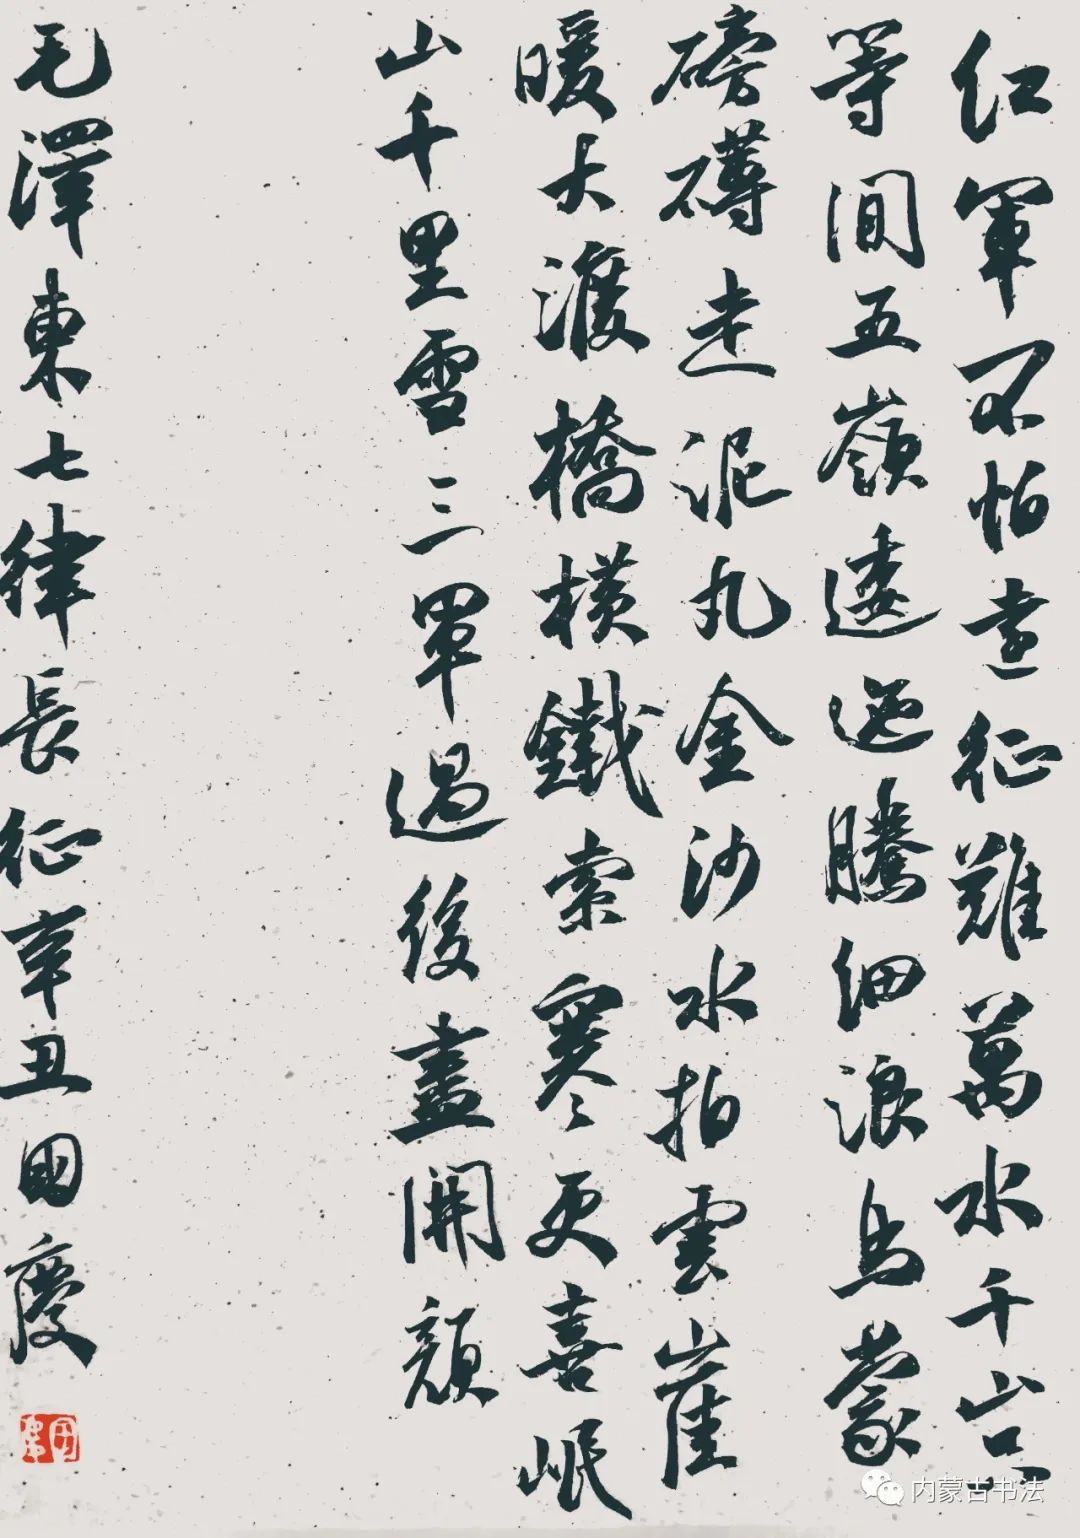 紅軍不怕遠征難萬水千山只
等閒五嶺逶迤騰細浪烏蒙
磅礴走泥丸金沙水拍雲崖
暖大渡橋橫鐵索寒更喜岷
山千里雪三軍過後盡開顏
毛澤東七律長征辛丑國慶
内蒙古书法